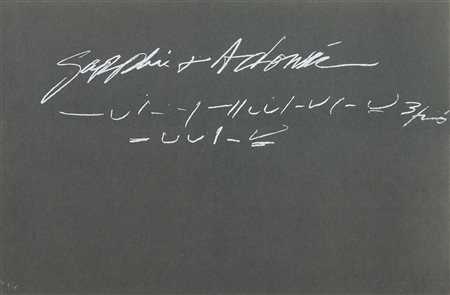 Sapphic + Adonic
— ∪ | — – | – || ∪ ∪ | – ∪ | – ∪
– ∪ ∪ | – ∪